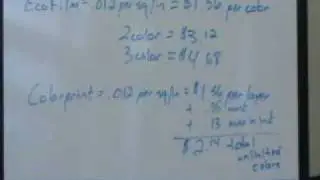 Ecofilm = .012 per sq/in = $1.56 per color
2 color = $3.12
3 color = $4.68
Colorprint = .012 per sq/in = $1.56 per layer
+ .36
+ .13
$2.14 total
unlimited
colors